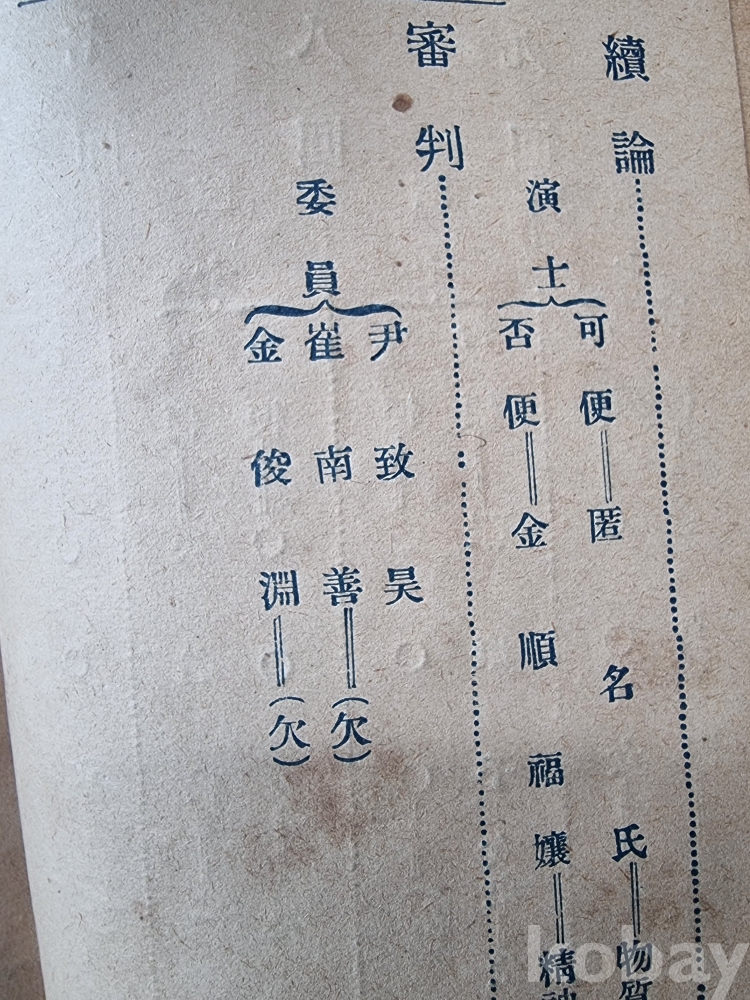 續論
演士
可便══匿名氏══物質
否便══金順福孃══精神
審判
委員
尹致昊
崔南善══(欠)
金俊淵══(欠)
kobay